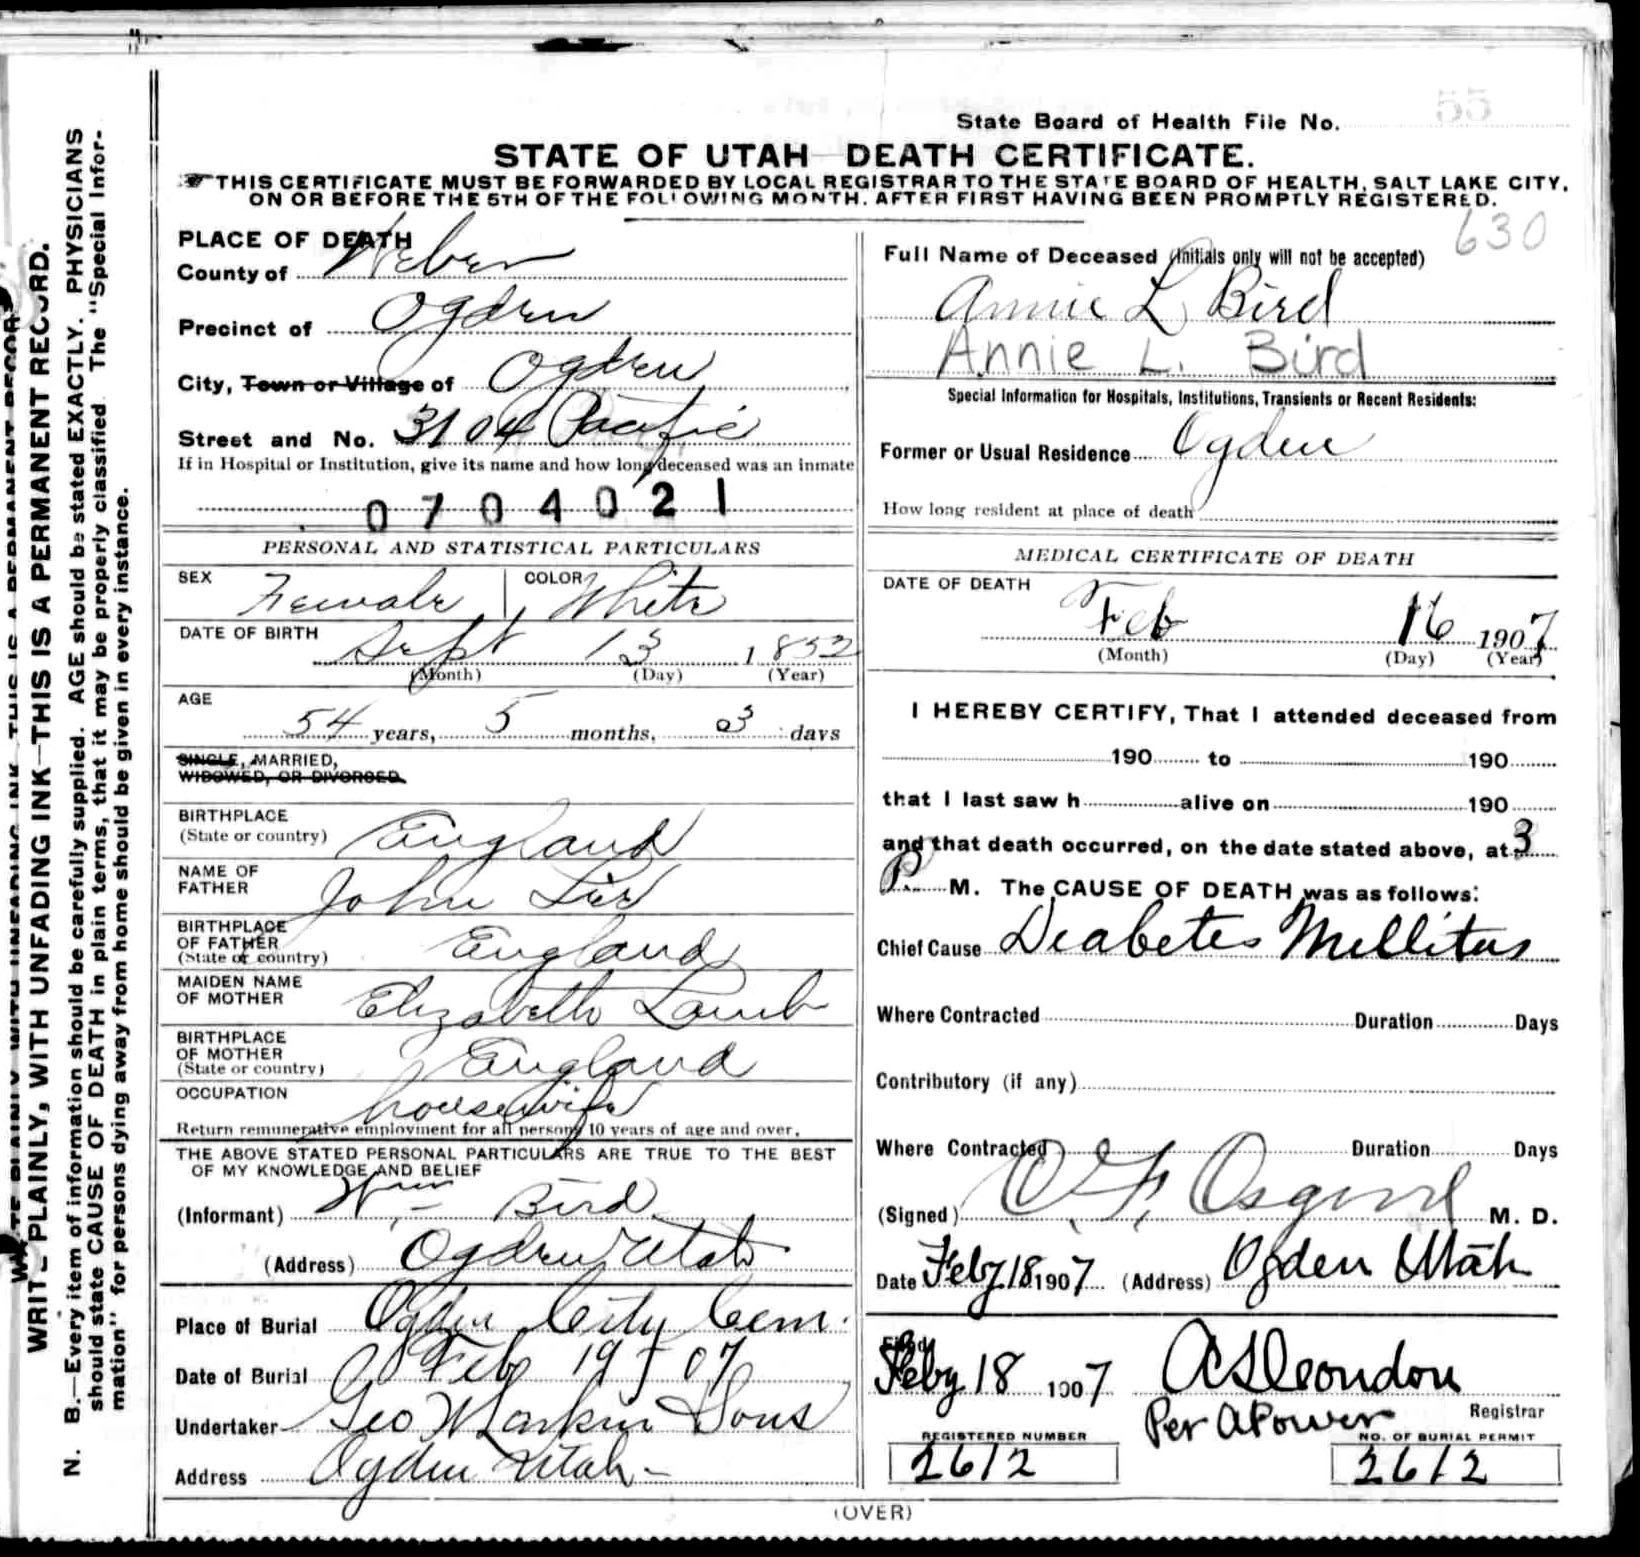 State Board of Health File No. 55
STATE OF UTAH DEATH CERTIFICATE.
THIS CERTIFICATE MUST BE FORWARDED BY LOCAL REGISTRAR TO THE STATE BOARD OF HEALTH, SALT LAKE CITY,
ON OR BEFORE THE 5TH OF THE FOLLOWING MONTH. AFTER FIRST HAVING BEEN PROMPTLY REGISTERED.
630
PLACE OF DEATH
County of Weber
Precinct of Ogden
City, Town or Village of Ogden
Street and No. 3104 Pacific
If in Hospital or Institution, give its name and how long deceased was an inmate
0704021
PERSONAL AND STATISTICAL PARTICULARS
SEX Female COLOR White
DATE OF BIRTH Sept 13 1852
(Month) (Day) (Year)
AGE
54 years, 5 months, 3 days
SINGLE, MARRIED,
WIDOWED, OR DIVORCED.
BIRTHPLACE
(State or country) England
NAME OF
FATHER John
BIRTHPLACE
OF FATHER
(State or country) England
MAIDEN NAME
OF MOTHER Elizabeth Lamb
BIRTHPLACE
OF MOTHER
(State or country) England
OCCUPATION housewife
Return remunerative employment for all persons 10 years of age and over.
THE ABOVE STATED PERSONAL PARTICULARS ARE TRUE TO THE BEST
OF MY KNOWLEDGE AND BELIEF
(Informant) Wm Bird
(Address) Ogden Utah
Place of Burial Ogden City Cem.
Date of Burial Feb 19 07
Undertaker Geo W Larkin Sons
Address Ogden Utah
Full Name of Deceased (Initials only will not be accepted)
Annie L Bird
Annie L. Bird
Special Information for Hospitals, Institutions, Transients or Recent Residents:
Former or Usual Residence Ogden
How long resident at place of death
MEDICAL CERTIFICATE OF DEATH
DATE OF DEATH
Feb 16 1907
(Month) (Day) (Year)
I HEREBY CERTIFY, That I attended deceased from
190 to 190
that I last saw h alive on 190
and that death occurred, on the date stated above, at 3
P. M. The CAUSE OF DEATH was as follows:
Chief Cause Diabetes Mellitus
Where Contracted Duration Days
Contributory (if any)
Where Contracted Duration Days
(Signed) O. F. Osgood M. D.
Date Feby 18 1907 (Address) Ogden Utah
Feby 18 1907 A S Condon
Registrar
Per A Power
REGISTERED NUMBER
2612
NO. OF BURIAL PERMIT
2612
(OVER)
WRITE PLAINLY, WITH UNFADING INK—THIS IS A PERMANENT RECORD.
N. B.—Every item of information should be carefully supplied. AGE should be stated EXACTLY. PHYSICIANS
should state CAUSE OF DEATH in plain terms, that it may be properly classified. The "Special Infor-
mation" for persons dying away from home should be given in every instance.